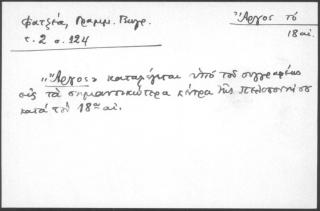 Φατζέα, Γραμμ. Βιογρ.
τ. 2 σ. 124
Ἄργος τό
18 αἰ.
«Ἄργος» καταγράφεται ὑπό τοῦ συγγραφέως
εἰς τά σημαντικώτερα κέντρα τῆς Πελοποννήσου
κατά τόν 18ον αἰ.